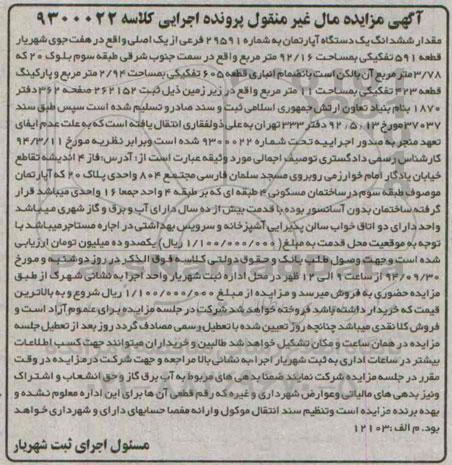 آگهی مزایده مال غیر منقول پرونده اجرایی کلاسه ۹۳۰۰۰۲۲
مقدار ششدانگ یک دستگاه آپارتمان به شماره ۲۹۵۹۱ فرعی از یک اصلی واقع در هفت جوی شهریار
قطعه ۵۹۱ تفکیکی بمساحت ۹۲/۱۶ متر مربع واقع در سمت جنوب شرقی طبقه سوم بلوک ۲۰ که
۳/۷۸ متر مربع آن بالکن است بانضمام انباری قطعه ۶۰۵ تفکیکی بمساحت ۲/۹۴ متر مربع و پارکینگ
قطعه ۴۲۳ تفکیکی بمساحت ۱۰ متر مربع واقع در زیر زمین ذیل ثبت ۲۶۲۱۵۲ صفحه ۳۶۲ دفتر
۱۸۷۰ بنام بنیاد تعاون ارتش جمهوری اسلامی ثبت و سند صادر و تسلیم شده است سپس طبق سند
۳۷۰۳۷ مورخ ۹۲/۰۵/۱۳ دفتر ۳۳۳ تهران به علی ذولفقاری انتقال یافته است که به علت عدم ایفای
تعهد منجر به صدور اجراییه تحت شماره ۹۳۰۰۰۲۲ شده است وبرابر نظریه مورخ ۹۴/۳/۱۱
کارشناس رسمی دادگستری توصیف اجمالی مورد وثیقه عبارت است از: آدرس: فاز ۴ اندیشه تقاطع
خیابان یادگار امام خوارزمی روبروی مسجد سلمان فارسی مجتمع ۸۰۴ واحدی پلاک ۲۰ که آپارتمان
موصوف طبقه سوم در ساختمان مسکونی ۴ طبقه ای که بر طبقه ۴ واحد جمعا ۱۶ واحدی میباشد قرار
گرفته ساختمان بدون آسانسور بوده با قدمت بیش از ده سال دارای آب و برق و گاز شهری میباشد
واحد دارای دو اتاق خواب سالن پذیرایی آشپزخانه و سرویس بهداشتی در اجاره مستاجر میباشد با
توجه به موقعیت محل قدمت به مبلغ (۱/۱۰۰/۰۰۰/۰۰۰ ریال) یکصدو ده میلیون تومان ارزیابی
شده است و جهت وصول طلب بانک و حقوق دولتی کلاسه فوق الذکر در روز دوشنبه و مورخ
۹۴/۰۹/۳۰ از ساعت ۹ الی ۱۲ ظهر در محل اداره ثبت شهریار واحد اجرا به نشانی شهرک از طبق
مزایده حضوری به فروش میرسد و مزایده از مبلغ ۱/۱۰۰/۰۰۰/۰۰۰ ریال شروع و به بالاترین
قیمت که خریدار داشته باشد فروخته خواهد شد شرکت در جلسه مزایده برای عموم آزاد است و
فروش کلا نقدی میباشد چنانچه روز تعیین شده با تعطیل رسمی مصادف گردد روز بعد از تعطیل جلسه
مزایده در همان ساعت و مکان تشکیل خواهد شد طالبین و خریداران میتوانند جهت کسب اطلاعات
بیشتر در ساعات اداری به ثبت شهریار اجرا به نشانی بالا مراجعه و جهت شرکت در مزایده در وقت
مقرر در جلسه مزایده شرکت نمایند ضمنا بدهی های مربوط به آب برق گاز و حق انشعاب و اشتراک
ونیز بدهی های مالیاتی وعوارض شهرداری و غیره که رقم قطعی آن ها برای این اداره معلوم نشده و
بعهده برنده مزایده است وتنظیم سند انتقال موکول وارائه مفصا حسابهای دارای و شهرداری خواهد
بود. م الف: ۱۲۱۰۳
مسئول اجرای ثبت شهریار